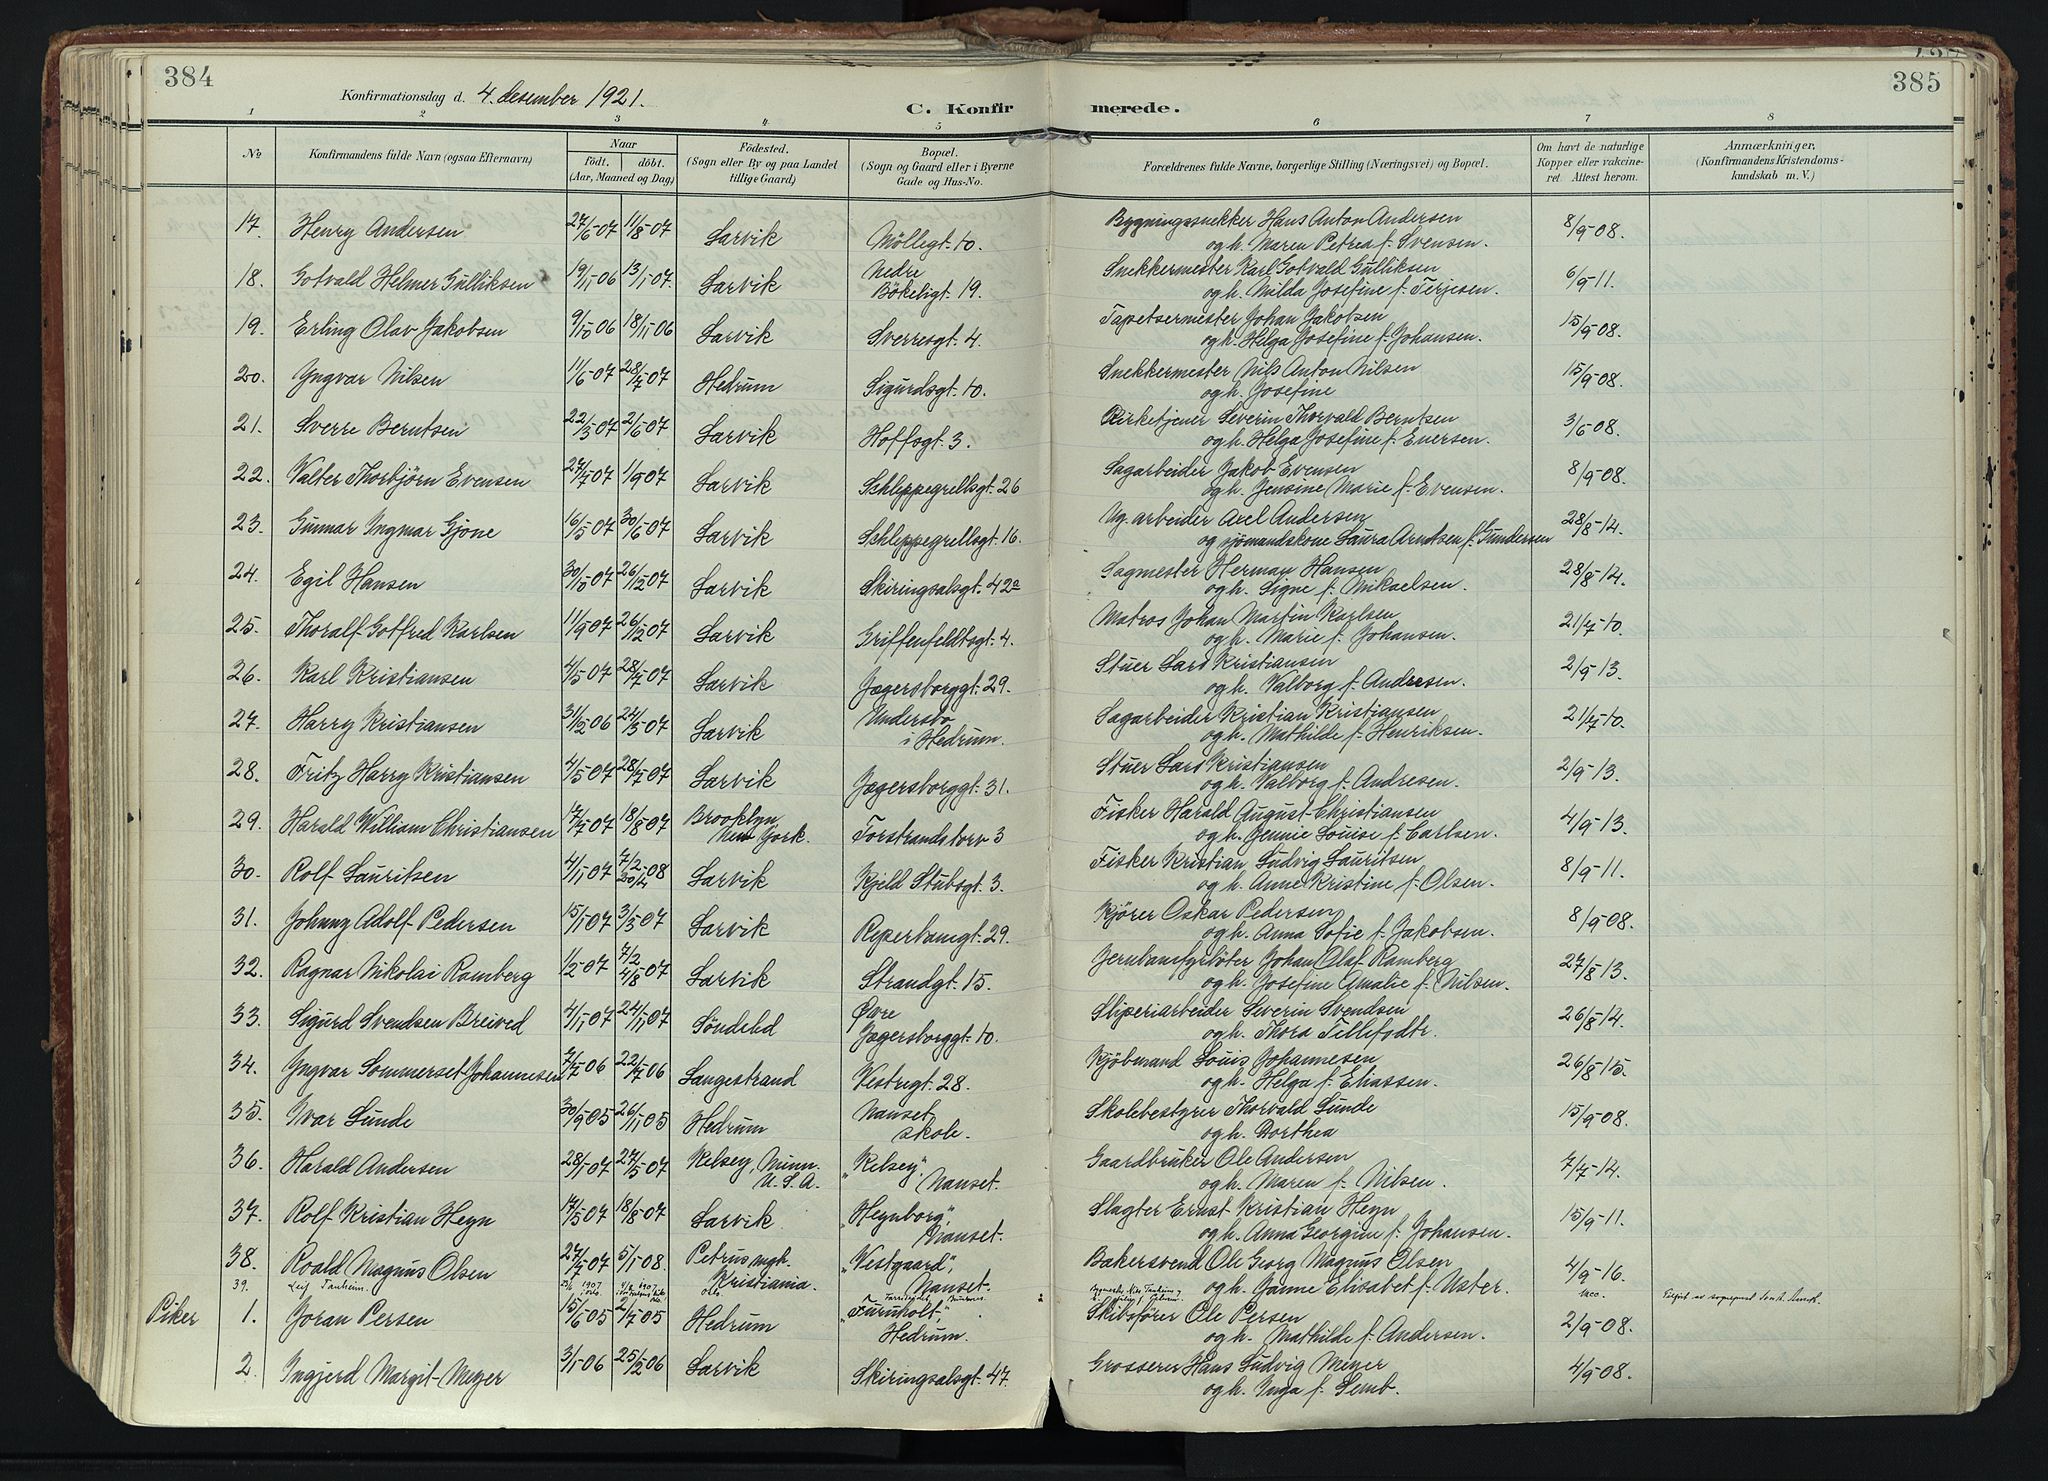 384
385
Konfirmationsdag d. 4. desember 1921.
C. Konfirmerede.
1 2 3 4 5 6 7 8
No Konfirmandens fulde Navn (ogsaa Efternavn) Naar født. døbt. (Aar, Maaned og Dag) Fødested. (Sogn eller By og paa Landet tillige Gaard) Bopæl. (Sogn og Gaard eller i Byerne Gade og Hus-No. Forældrenes fulde Navne, borgerlige Stilling (Næringsvei) og Bopæl. Om havt de naturlige Kopper eller vakcineret. Attest herom. Anmærkninger, (Konfirmandens Kristendomskundskab m. V.)
17. Henry Andersen 27/6-07 11/8-07 Larvik Möllegt. 10. Bygningssnekker Hans Anton Andersen
og h. Maren Petrea f. Svensen. 8/9-08.
18. Gotvald Helmer Gulliksen 19/11-06 13/1-07. Larvik Nedre Bökeligt. 19. Snekkermester Karl Gotvald Gulliksen
og h. Milda Josefine f. Terjesen. 6/9-11.
19. Erling Olav Jakobsen 9/10-06 18/11-06 Larvik Sverresgt. 4. Tapetsermester Johan Jakobsen
og h. Helga Josefine f. Johansen. 15/9-08.
20. Yngvar Nilsen 11/6-07 28/7-07 Hedrum Sigurdsgt. 10. Snekkermester Nils Anton Nilsen
og h. Josefine 15/9-08.
21. Sverre Berntsen 22/3-07 2/6-07 Larvik Hoffsgt. 3. Kirketjener Severin Thorvald Berntsen
og h. Helga Josefine f. Evensen. 3/6-08.
22. Valter Thorbjörn Evensen 27/7-07 1/9-07 Larvik Schleppegrellsgt. 26 Sagarbeider Jakob Evensen
og h. Jensine Marie f. Evensen. 8/9-08.
23. Gunnar Ingmar Gjone 16/5-07 30/6-07 Larvik Schleppegrellsgt. 16. Ug. arbeider Axel Andersen
og sjömandskone Laura Arntsen f. Gundersen 28/8-14.
24. Egil Hansen 30/10-07 26/12-07 Larvik Skiringsalsgt. 42a Sagmester Herman Hansen
og h. Signe f. Mikaelsen. 28/8-14.
25. Thoralf Gotfred Karlsen 11/9-07 26/12-07 Larvik Griffenfeldtsgt. 4. Matros Johan Martin Karlsen
og h. Marie f. Johansen. 21/7-10.
26. Karl Kristiansen 4/5-07 28/7-07 Larvik Jægersborggt. 29. Stuer Lars Kristiansen
og h. Valborg f. Andresen. 2/9-13.
27. Harry Kristiansen 31/12-06 24/3-07 Larvik Undersbo i Hedrum. Sagarbeider Kristian Kristiansen
og h. Mathilde f. Henriksen. 21/7-10.
28. Fritz Harry Kristiansen 4/5-07 28/7-07 Larvik Jægersborggt. 31. Stuer Lars Kristiansen
og h. Valborg f. Andresen. 2/9-13.
29. Harald William Christiansen 17/7-07 18/8-07 Brooklyn New York. Torstrandstorv 3 Fisker Harald August Christiansen
og h. Jennie Louise f. Carlsen. 4/9-13.
30. Rolf Lauritsen 4/11-07 7/2-08 Larvik Kjeld Stubsgt. 3. Fisker Kristian Ludvig Lauritsen
og h. Anne Kristine f. Olsen. 8/9-11.
31. Johnny Adolf Pedersen 15/1-07 3/3-07 Larvik Reperbanegt. 29. Kjörer Oskar Pedersen
og h. Anna Sofie f. Jakobsen. 8/9-08.
32. Ragnar Nikolai Ramberg 1/2-07 7/2 4/8-07 Larvik Strandgt. 15. Jernbanefyrböter Johan Olaf Ramberg
og h. Josefine Amalie f. Nilsen. 27/8-13.
33. Sigurd Svendsen Breived 4/11-07 24/11-07 Söndeled Øvre Jægersborggt. 10. Sliperiarbeider Severin Svendsen
og h. Thora Tellefsdtr. 26/8-14.
34. Yngvar Sommerset Johannesen 7/7-06 22/7-06 Langestrand Vestregt. 28. Kjöbmand Louis Johannesen
og h. Helga f. Eliassen. 26/8-15.
35. Ivar Lunde 30/9-05 26/11-05 Hedrum Nanset skole. Skolebestyrer Thorvald Lunde
og h. Dorthea 15/9-08.
36. Harald Andersen 28/1-07 27/5-07 Kelsey, Minn. U. S. A. "Kelsey", Nanset. Gaardbruker Ole Andersen
og h. Maren f. Nilsen. 7/7-14.
37. Rolf Kristian Heyn 17/5-07 18/8-07 Larvik "Heynborg", Nanset. Slagter Ernst Kristian Heyn
og h. Anna Georgine f. Johansen. 15/9-11.
38. Roald Magnus Olsen 27/7-07 5/1-08. Petrus mgh. Kristiania. "Vestgaard", Nanset. Bakersvend Ole Georg Magnus Olsen
og h. Janne Elisabet f. Uster. 4/9-16.
39. Leif Tanheim.
Piker 1. Joran Persen 15/6-05 2/7-05 Hedrum "Furuholt", Hedrum. Skibsförer Ole Persen
og h. Mathilde f. Andersen. 2/9-08.
2. Ingjerd Margit Meyer 3/1-06 25/2-06 Larvik Skiringsalsgt. 47. Grosserer Hans Ludvig Meyer
og h. Inga f. Semb. 4/9-08.